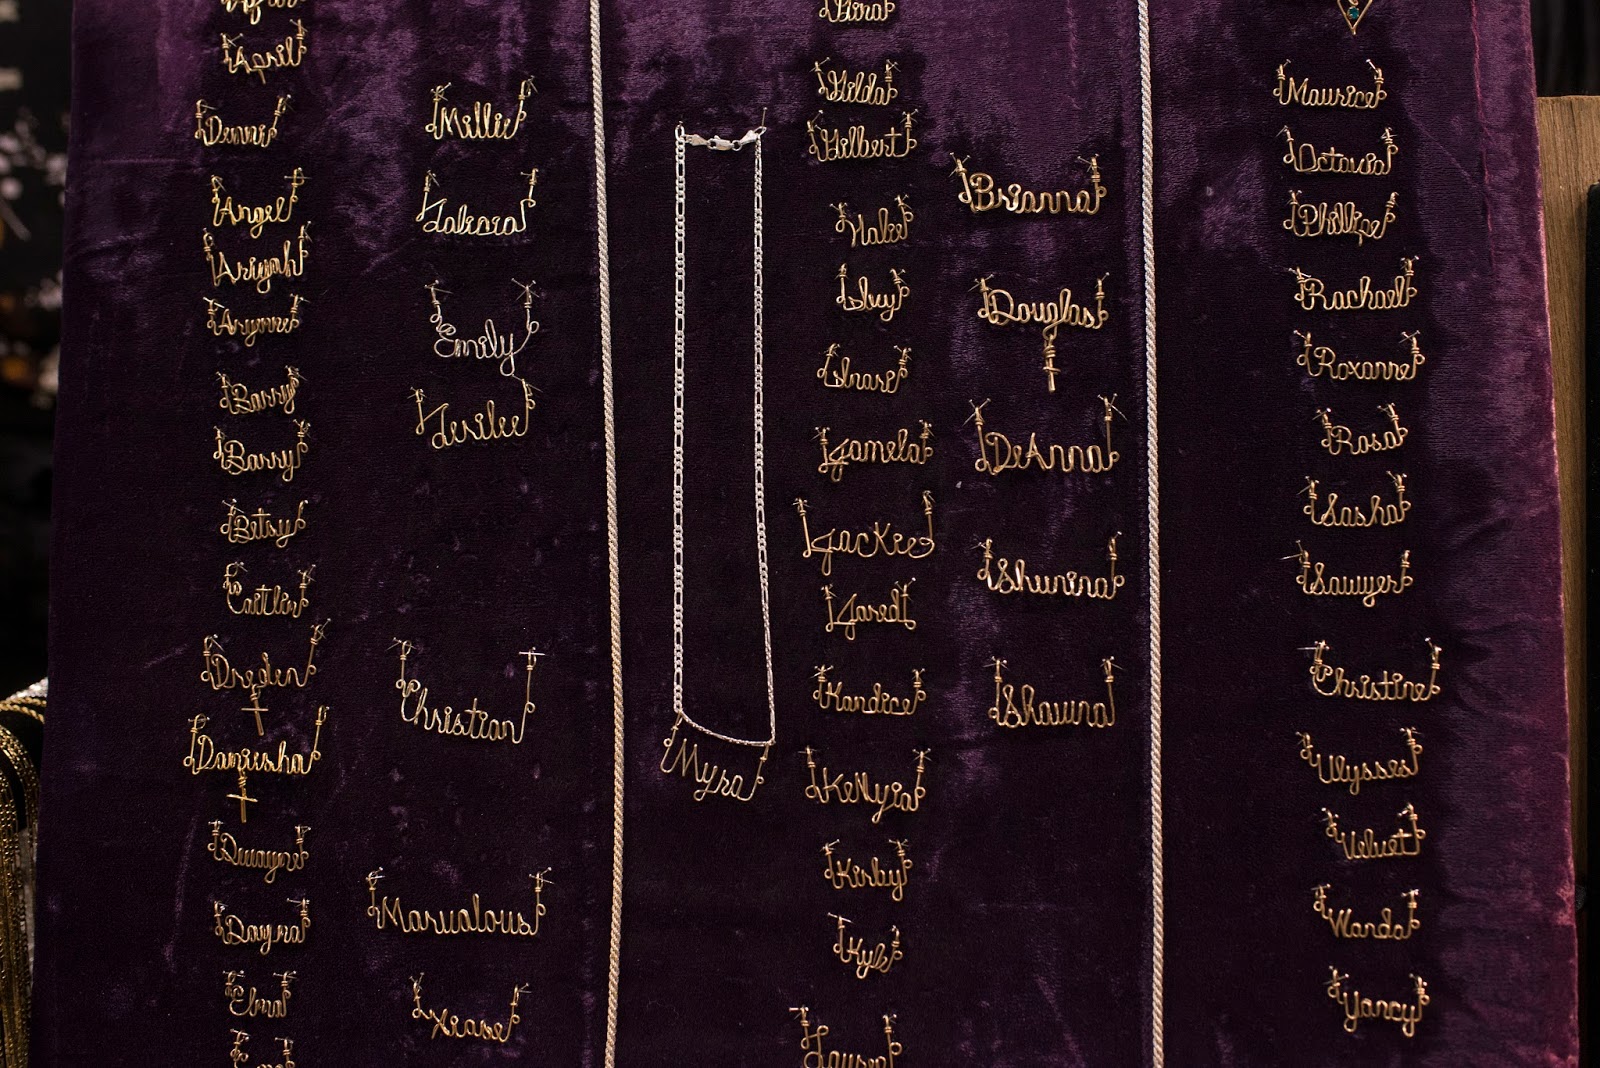 April
Denni
Angel
Ariyah
Aryonne
Barry
Barry
Betsy
Caitlin
Dreden
Daniesha
Dwayne
Dayna
Elma
Millie
Takeera
Emily
Desilee
Christian
Marvalous
Xease
Myra
Gilda
Gilbert
Hale
Ivy
Ihrase
Jamela
JacKie
Jaredt
Kandice
KeNyia
Kirby
Kyle
Brianna
Douglas
DeAnna
Shunina
Shawna
Maurice
Octavia
Phillipe
Rachael
Roxanne
Rosa
Sasha
Sawyer
Christine
Ulysses
Velvet
Wanda
Yancy